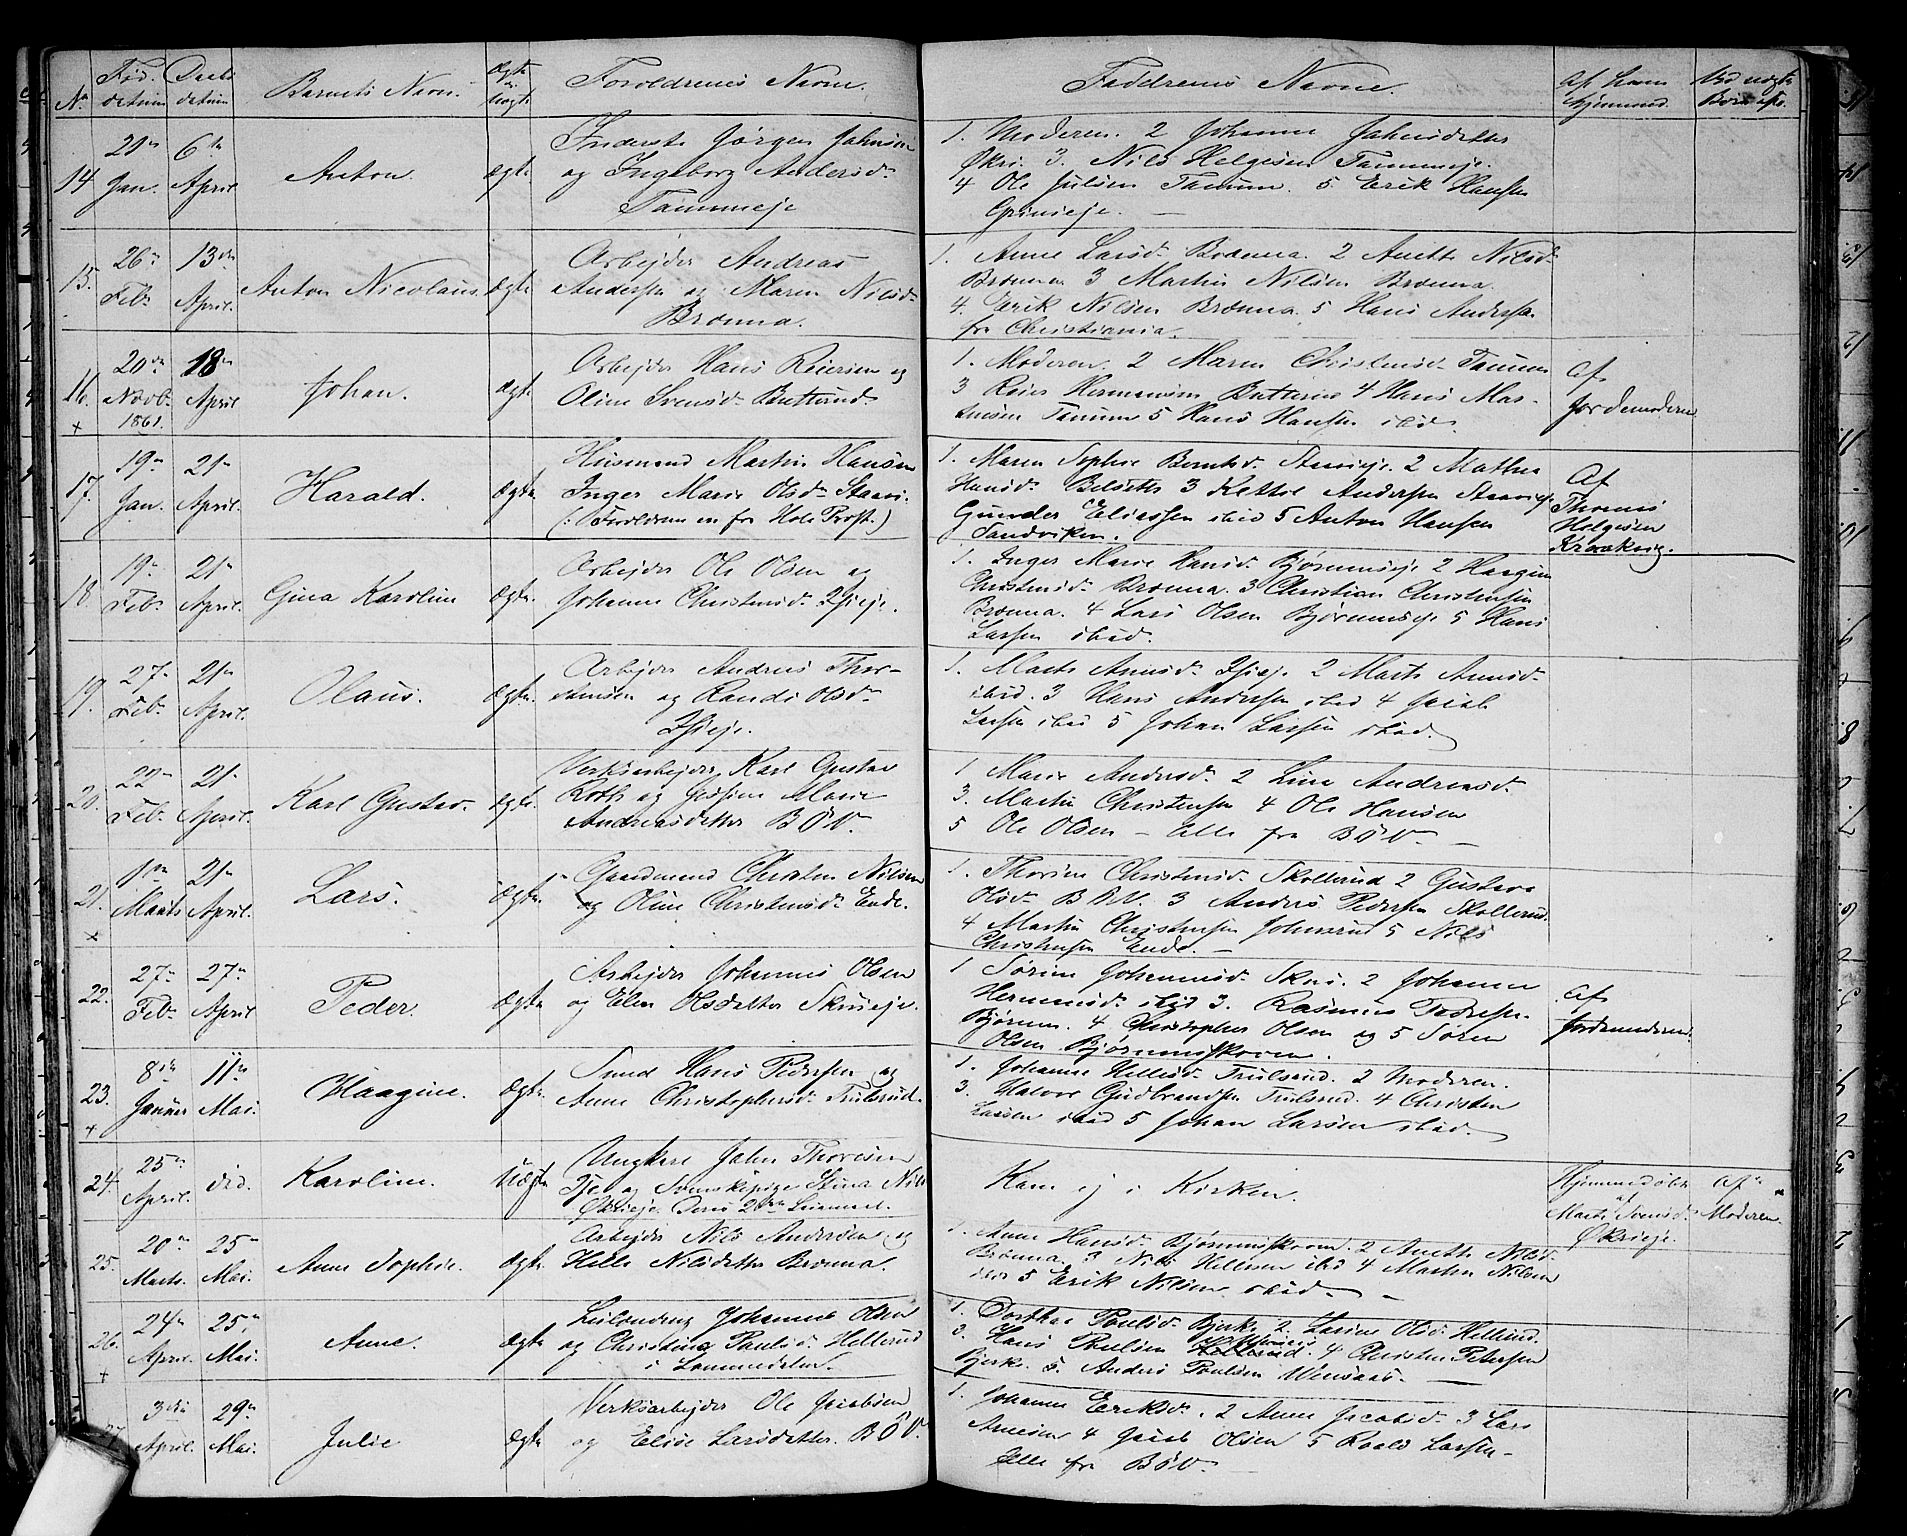 No. Fød. datum Daabs datum Barnets Navn. Ægte og Uægte Forældrenes Navne. Faddrenes Navne. Af hvem hjemmed. Ved uægte Børn
14 20de Jan. 6te April Anton. ægte
Inderste Jørgen Johnsen
og Ingeborg Andersd.
Tanumeje
1. Moderen. 2 Johanne Johnsdatter
Økri. 3. Nils Helgesen Tanumeje.
4 Ole Julsen Tanum. 5 Erik Hansen
Grinieje.
15. 26de Feb. 13de April. Anton Nicolaus. ægte
Arbejder Andreas
Andersen og Maren Nilsd.
Brønna.
1. Anne Larsd. Brønna. 2 Anette Nilsd.
Brønna 3 Martin Nilsen Brønna.
4. Erik Nilsen Brønna. 5 Hans Andersen
fra Christiania.
16. 20de Novb. 1861. 18de April Johan. ægte
Arbejder Hans Reiersen og
Oline Svensd. Butterud.
1. Moderen. 2 Maren Christensd. Tanum
3 Reier Hermansen Butterud 4 Hans Mar-
tinsen Tanum 5 Hans Hansen ibid.
Af
Jordemoderen
17. 19de Jan. 21de April. Harald. ægte
Husmand Martin Hansen
Inger Marie Olsdr.
(: Forældrene er fra Hole Præst.)
1. Maren Sophie Berntsd. 2 Mathea
Hansd. Belsette 3 Kettil Andersen
Gunder Eliassen ibid 5 Anton Hansen
Sandviken.
Af
Thomas
Helgesen
18. 19de Feb. 21de April. Gina Karoline ægte
Arbejder Ole Olsen og
Johanne Christensd.
1. Inger Marie Hansd. Bjørumseje 2 Haagine
Christensd. Brønna. 3 Christian Christensen
Brønna. 4 Lars Olsen Bjørumseje 5 Hans
Larsen ibid.
19. 27de Feb. 21de April. Olaus. ægte
Arbejder Andreas Thor-
stensen og Randi Olsdr.
1. Marte Arnesd. 2 Marte Arnesd.
ibid. 3 Hans Andersen ibid 4 Jacob
Larsen ibid 5 Johan Larsen ibid.
20. 22de Feb. 21de April. Karl Gustav. ægte.
Verksarbejder Karl Gustav
Roth og Jossine Marie
Andreasdatter BØV.
1 Marie Andersd. 2 Line Andreasd.
3. Martin Christensen 4 Ole Hansen
5 Ole Olsen - Alle fra BØV.
21. 1ste Marts 21de April. Lars. ægte.
Gaardmand Christen Nilsen
og Oline Christensd. Ende.
1. Thorine Christensd. Skollerud 2 Gustava
Olsd. BØV. 3 Anders Pedersen Skollerud.
4 Martin Christensen Johnsrud 5 Nils
Christensen Ende.
22. 27de Feb. 27de April Peder. ægte
Arbejder Johannes Olsen
og Elen Olsdatter Skuieje.
1 Sørine Johannesd. Skui. 2 Johanne
Hermansd. ibid 3. Rasmus Pedersen
Bjørum. 4 Christopher Olsen og 5 Søren
Olsen Bjørumskoven.
Af
Jordemoderen.
23. 8de Januar 11te Mai. Haagine. ægte.
Smed Hans Pedersen og
Anne Christophersd. Trulsrud.
1. Johanne Hellesd. Trulsrud. 2 Moderen.
3. Halvor Gudbrandsen Trulsrud. 4 Christen
Larsen ibid 5 Johan Larsen ibid.
24. 25de April. did. Karoline. Uægte
Ungkarl John Thoresen
og Svenskepige Stina Nils
Økrieje. Deres 2det Leiermaal.
Kom ej i Kirken.
Hjemmedøbt
af
Marte Svensd.
Økrieje.
Af
Moderen.
25. 20de Marts. 25de Mai. Anne Sophie. ægte.
Arbejder Nils Andersen og
Helle Nilsdatter Brønna.
1. Anne Hansd. Bjørumskoven. 2 Anette Nilsd.
Brønna. 3 Nils Hellesen ibid 4 Martin Nilsen
ibid 5 Erik Nilsen ibid.
26. 24de April. 25de Mai. Anne. ægte
Leilending Johannes Olsen
og Christine Paulsd. Hellerud
i Lommedalen.
1. Dorthea Poulsd. Bjerke 2. Larine Olsd. Hellerud.
3. Hans Poulsen Hellerud. 4 Christen Petersen
Bjerke. 5. Anders Poulsen
3die April. 29de Mai. Julie ægte
Verksarbejder Ole Jacobsen
og Elise Larsdatter. BØV.
1. Johanne Eriksd. 2 Anne Jacobsd. 3 Lars
Arnesen 4 Jacob Olsen 5 Roald Larsen
Alle fra BØV.